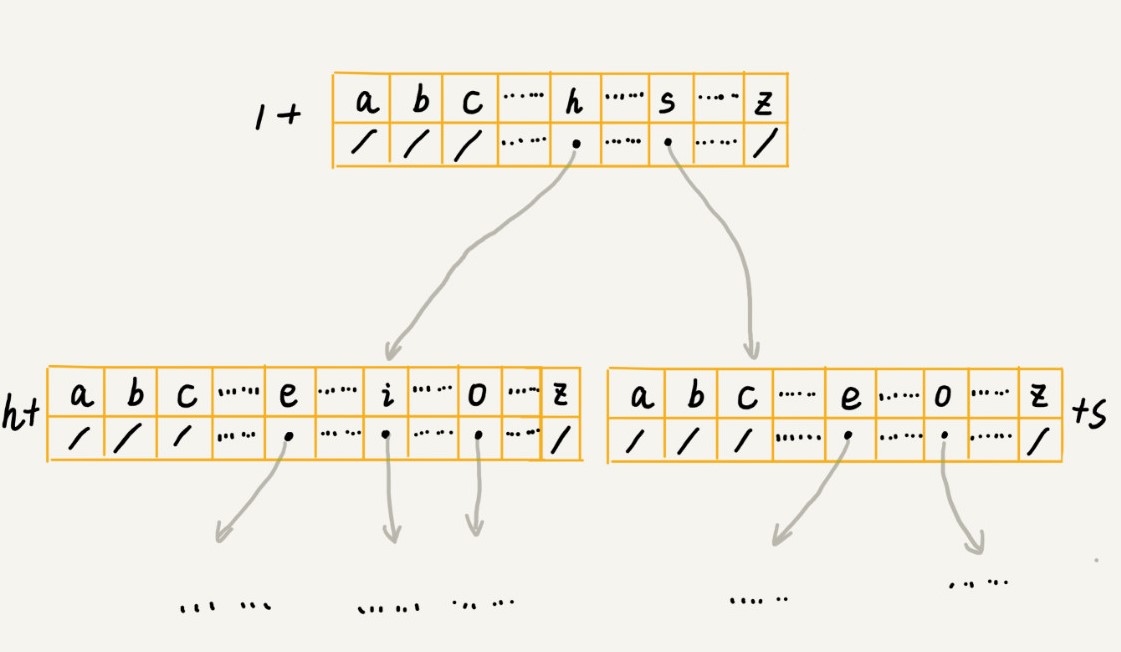 / + a b c ...... h ...... s ...... z
/ / / ...... • ...... • ...... /
h+ a b c ...... e ...... i ...... o ...... z
/ / / ...... • ...... • ...... • ...... /
a b c ...... e ...... o ...... z +s
/ / / ...... • ...... • ...... /
...... ...... ...... ...... ......